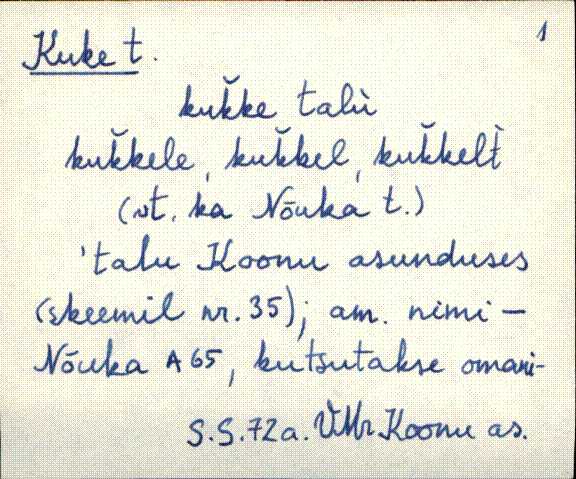 1
Kuke t.
kuk̆ke talù
kuk̆kele, kuk̆kel, kuk̆kelt̀
(vt. ka Nõuka t.)
'talu Koonu asunduses
(skeemil nr. 35); am. nimi –
Nõuka A 65, kutsutakse omani-
S.S. 72 a. VMr Koonu as.